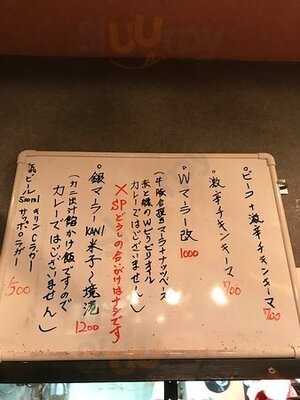 。ビーフ+激辛チキンキーマ 900
。激辛チキンキーマ 900
。Wマーラー改 1000
(牛豚合挽き マーラーナッツベース
赤と緑のWビリビリオイル
カレーではございません)
×SPどうしの合いがけはナシです
。銀マーラーKANI 米子〜境港 1200
(カニ出汁餡かけ飯ですので
カレーではございません)
ビール 500ml キリンCラガー サッポロラガー 500